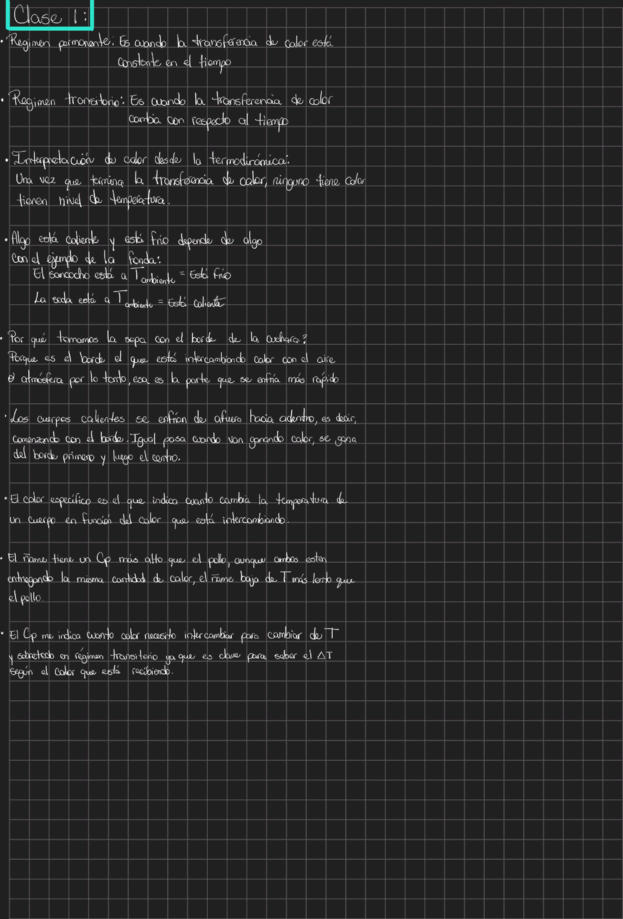 Clase 1:
• Regimen permanente: Es cuando la transferencia de calor está
constante en el tiempo
• Regimen transitorio: Es cuando la transferencia de calor
cambia con respecto al tiempo
• Interpretación de calor desde la termodinámica:
Una vez que termina la transferencia de calor, ninguno tiene calor
tienen nivel de temperatura.
• Algo está caliente y está frío depende de algo
con el ejemplo de la fonda:
El sancocho está a Tambiente = Está frío
La soda está a Tambiente = Está caliente
• Por qué tomamos la sopa con el borde de la cuchara?
Porque es el borde el que está intercambiando calor con el aire
o atmósfera por lo tanto, esa es la parte que se enfría más rápido
• Los cuerpos calientes se enfrían de afuera hacia adentro, es decir,
comenzando con el borde. Igual pasa cuando van ganando calor, se gana
del borde primero y luego el centro.
• El calor específico es el que indica cuanto cambia la temperatura de
un cuerpo en función del calor que está intercambiando.
• El ñame tiene un Cp más alto que el pollo, aunque ambos esten
entregando la misma cantidad de calor, el ñame baja de T más lento que
el pollo.
• El Cp me indica cuanto calor necesito intercambiar para cambiar de T
y sobretodo en régimen transitorio ya que es clave para saber el ΔT
según el calor que está recibiendo.